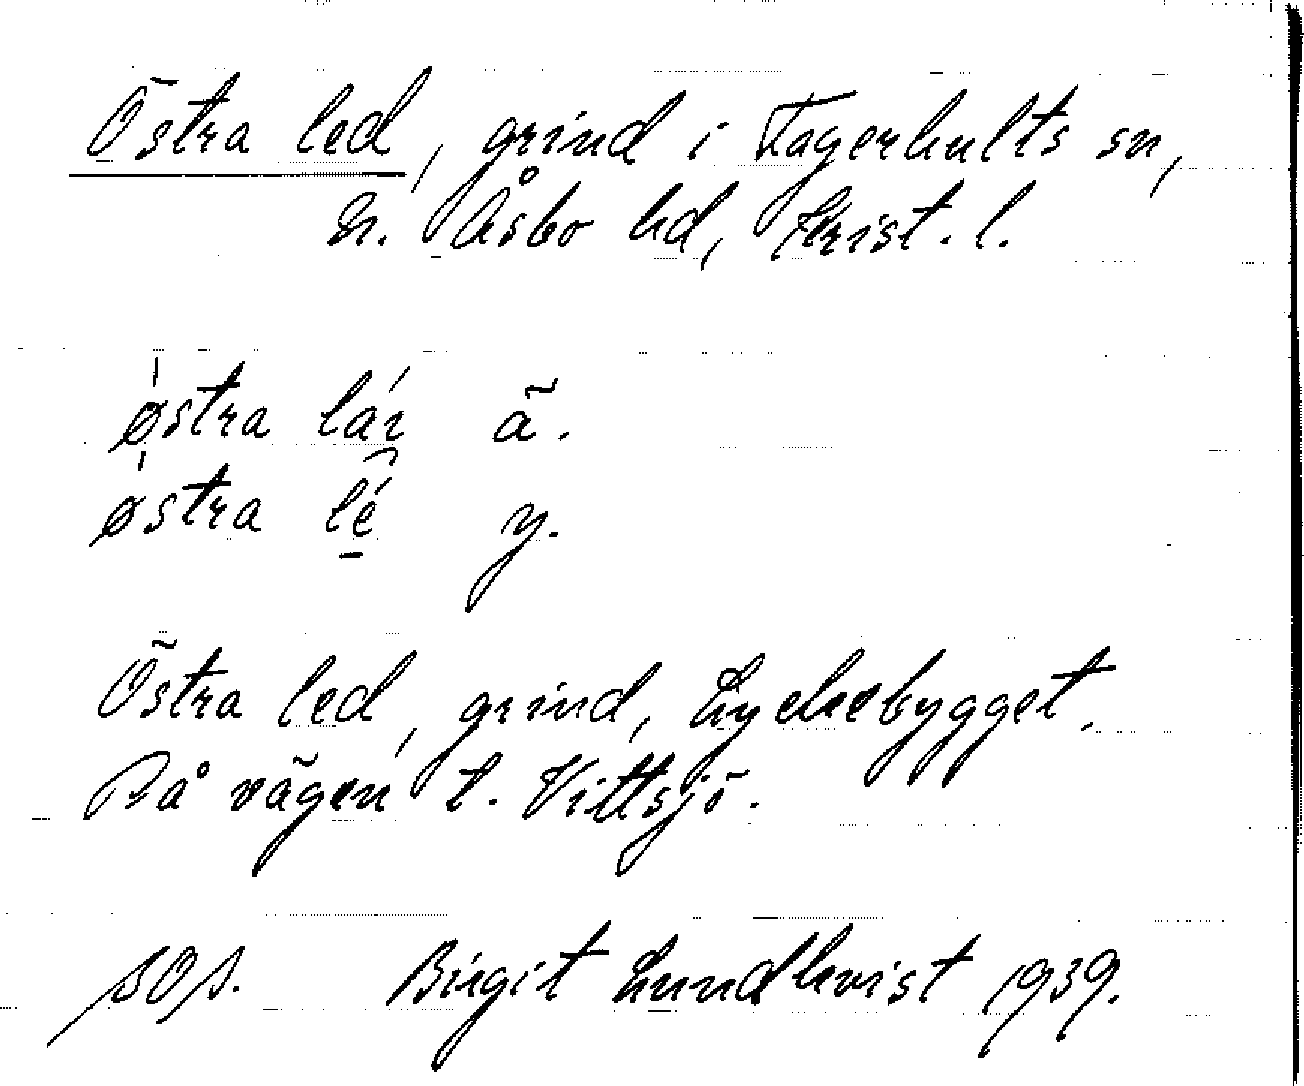 Östra led, grind i Fagerhults sn,
N. Åsbo hd, Krist. l.
østra lár ä.
østra lé y.
Östra led, grind, Lyckebygget.
På vägen t. Vittsjö.
SOS. Birgit Lundkvist 1939.